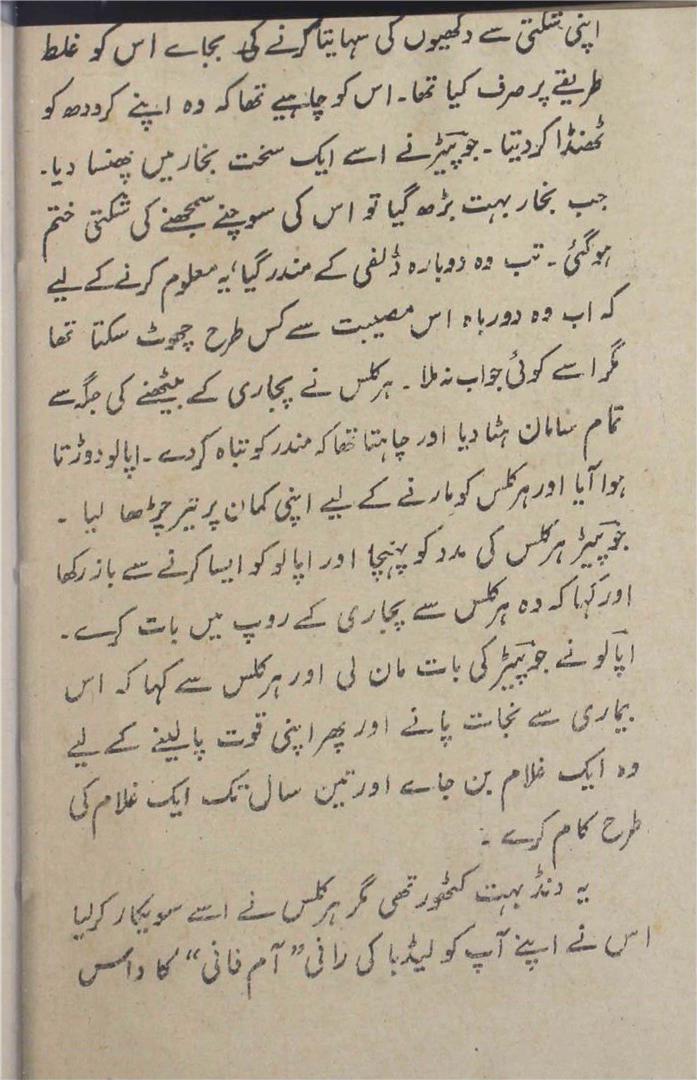 اپنی شکتی سے دکھیوں کی سہایتا کرنے کی بجاے اس کو غلط
طریقے پر صرف کیا تھا۔ اس کو چاہیے تھا کہ وہ اپنے کرودھ کو
ٹھنڈا کر دیتا۔ جوپیٹر نے اسے ایک سخت بخار میں پھنسا دیا۔
جب بخار بہت بڑھ گیا تو اس کی سوچنے سمجھنے کی شکتی ختم
ہوگئی۔ تب وہ دوبارہ ڈلفی کے مندر گیا، یہ معلوم کرنے کے لیے
کہ اب وہ دوبارہ اس مصیبت سے کس طرح چھوٹ سکتا تھا
مگر اسے کوئی جواب نہ ملا۔ ہرکلس نے پجاری کے بیٹھنے کی جگہ سے
تمام سامان ہٹا دیا اور چاہتا تھا کہ مندر کو تباہ کر دے۔ اپالو دوڑتا
ہوا آیا اور ہرکلس کو مارنے کے لیے اپنی کمان پر تیر چڑھا لیا۔
جوپیٹر ہرکلس کی مدد کو پہنچا اور اپالو کو ایسا کرنے سے باز رکھا
اور کہا کہ وہ ہرکلس سے پجاری کے روپ میں بات کرے۔
اپالو نے جوپیٹر کی بات مان لی اور ہرکلس سے کہا کہ اس
بیماری سے نجات پانے اور پھر اپنی قوت پا لینے کے لیے
وہ ایک غلام بن جاے اور تین سال تک ایک غلام کی
طرح کام کرے۔
یہ دنڈ بہت کٹھور تھی مگر ہرکلس نے اسے سویکار کرلیا
اس نے اپنے آپ کو لیڈیا کی رانی "آم فانی" کا داس